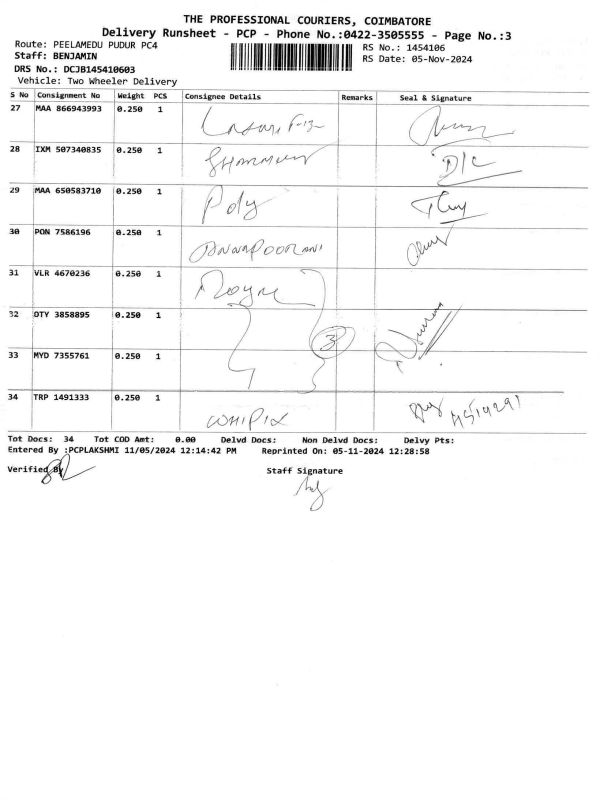 THE PROFESSIONAL COURIERS, COIMBATORE
Delivery Runsheet - PCP - Phone No.:0422-3505555 - Page No.:3
Route: PEELAMEDU PUDUR PC4
RS No.: 1454106
Staff: BENJAMIN
RS Date: 05-Nov-2024
DRS No.: DCJB145410603
Vehicle: Two Wheeler Delivery
S No Consignment No Weight PCS Consignee Details Remarks Seal & Signature
27 MAA 866943993 0.250 1
28 IXM 507340835 0.250 1 D/C
29 MAA 650583710 0.250 1 Pdy
30 PON 7586196 0.250 1 ANNAPOORANI
31 VLR 4670236 0.250 1
32 OTY 3858895 0.250 1 3
33 MYD 7355761 0.250 1
34 TRP 1491333 0.250 1 WHIPIX
Tot Docs: 34 Tot COD Amt: 0.00 Delvd Docs: Non Delvd Docs: Delvy Pts:
Entered By :PCPLAKSHMI 11/05/2024 12:14:42 PM Reprinted On: 05-11-2024 12:28:58
Verified By Staff Signature